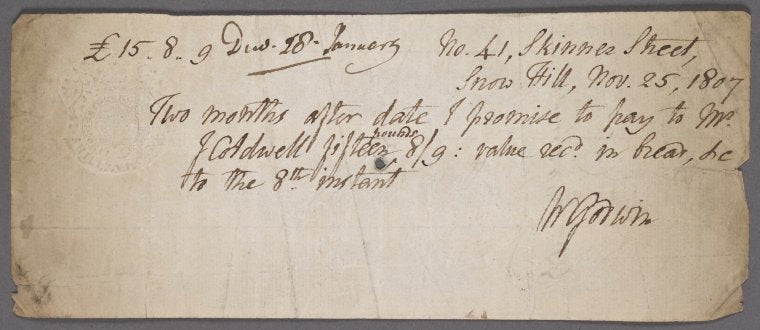 £15. 8. 9 Due. 28. January No. 41, Skinner Street,
Snow Hill, Nov. 25, 1807
Two months after date I promise to pay to Mr.
J Coldwell fifteen pounds 8/9: value recd. in bread, &c
to the 8th instant
W Godwin